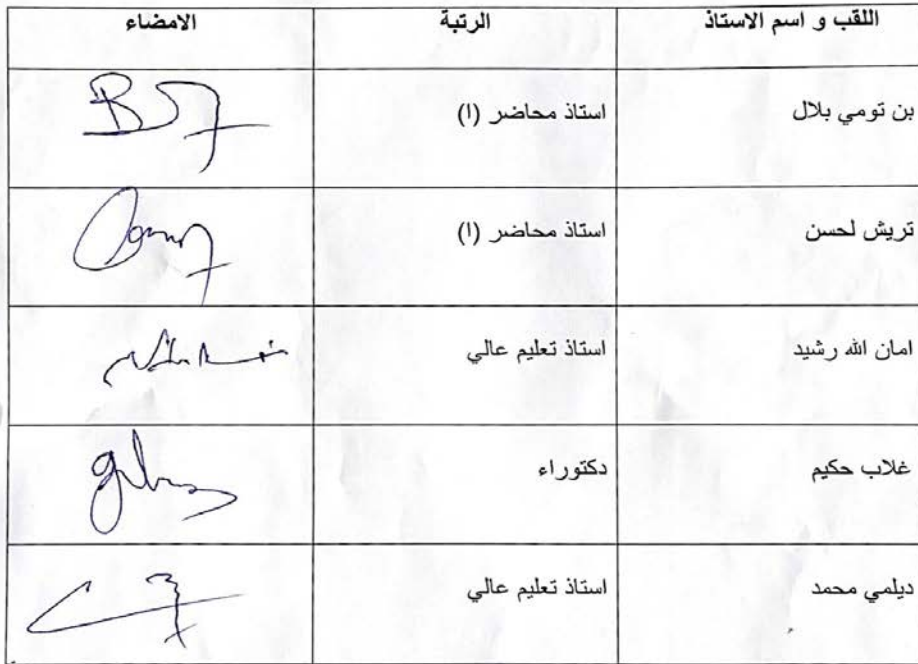 اللقب و اسم الاستاذ الرتبة الامضاء
بن تومي بلال استاذ محاضر (ا)
تريش لحسن استاذ محاضر (ا)
امان الله رشيد استاذ تعليم عالي
غلاب حكيم دكتوراء
ديلمي محمد استاذ تعليم عالي